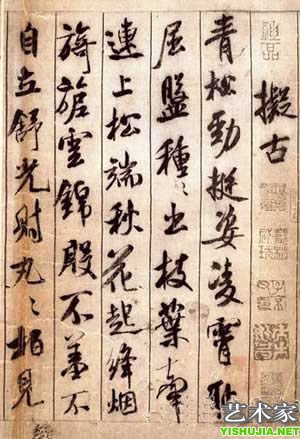 擬古
青松勁挺姿凌霄恥
屈盤種〻出枝葉牽
連上松端秋花起絳烟
旖旎雲錦殷不羞不
自立舒光射丸〻柏見
艺术家
YISHUJIA.NET